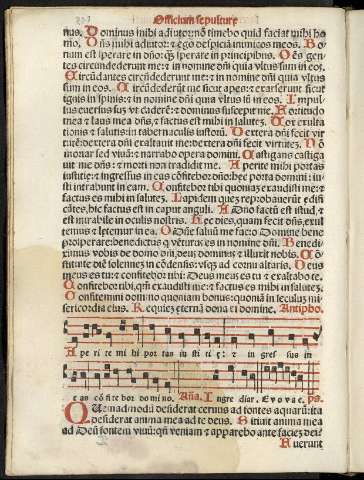 Officium sepulture
nus. Dominus mihi adiutor: nō timebo quid faciat mihi ho
mo. Dn̄s mihi adiutor: ⁊ ego despiciā inimicos meos. Bo
num est sperare in dn̄o: q̄ sperare in principibus. Om̄s gen
tes circundederunt me: ⁊ in nomine dn̄i quia vltus sum in eos.
Circūdantes circūdederūt me: ⁊ in nomine dn̄i quia vltus
sum in eos. Circūdederūt me sicut apes: ⁊ exarserunt sicut
ignis in spinis: ⁊ in nomine dn̄i quia vltus sū in eos. Impul
sus euersus suz vt caderē: ⁊ dominus suscepit me. Fortitudo
mea ⁊ laus mea dn̄s: ⁊ factus est mihi in salutez. Vox exulta
tionis ⁊ salutis: in tabernaculis iustoꝝ. Dextera dn̄i fecit vir
tutē: dextera dn̄i exaltauit me: dextera dn̄i fecit virtutez. Nō
moriar sed viuā: ⁊ narrabo opera domini. Castigans castiga
uit me dn̄s: ⁊ morti non tradidit me. Aperite mihi portas
iusticie: ⁊ ingressus in eas cōfitebor dn̄o: hec porta domini: iu
sti intrabunt in eam. Confitebor tibi quoniaz exaudisti me: ⁊
factus es mihi in salutez. Lapidem quez reprobauerūt edifi
cātes: hic factus est in caput anguli. A Dn̄o factū est istud: ⁊
est mirabile in oculis nostris. Hec dies, quam fecit dn̄s, exul
temus ⁊ letemur in ea. O Dn̄e saluū me fac o Domine bene
prosperare: benedictus q̄ vēturus es in nomine dn̄i. Benedi
ximus vobis de domo dn̄i, deus dominus ⁊ illuxit nobis. Cō
stituite diē solennez in cōdensis: vsqꝫ ad cornu altaris. Deus
meus es tu: ⁊ confitebor tibi: Deus meus es tu ⁊ exaltabo te.
Confitebor tibi, qm̄ exaudisti me: ⁊ factus es mihi in salutez.
Confitemini domino quoniam bonus: quoniā in seculuz mi
sericordia eius. Requiez eternā dona eis domine. Antipho.
A pe ri te mi hi por tas iu sti ti ę: ⁊ in gres sus in
e as cō fite bor do mi no. Aña. In gre diar. Evovae. ps.
Quēadmodū desiderat ceruus ad fontes aquarū: ita
desiderat anima mea ad te deus. Sitiuit anima mea
ad Deū fontem viuū: qn̄ veniam ⁊ apparebo ante faciez dei?
Fuerunt